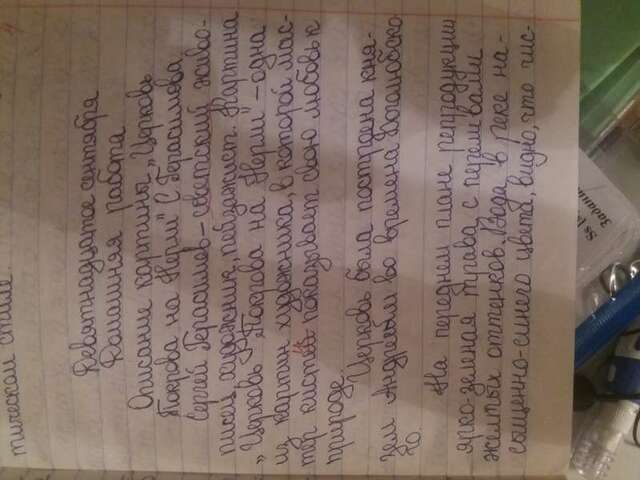 тическом стиле.
Девятнадцатое сентября
Домашняя работа
Описание картины „Церковь
Покрова на Нерли" С Герасимова
Сергей Герасимов - советский живо-
писец, художник, пейзажист. Картина
„Церковь „Покрова на Нерли" - одна
из картин художника, в которой мас-
тер кистей показывает свою любовь к
природе.
Церковь была построена кня-
зем Андреем во времена Боголюбско
го.
На переднем плане репродукции
ярко-зеленая трава с переливами
желтых оттенков. Вода в реке на-
сыщенно-синего цвета, видно, что чис-
Задани